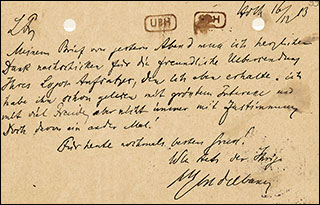 UBH
16/12 13
L. Fr.
Meinem Brief von gestern Abend muss ich herzlichen
Dank nachschicken für die freundliche Uebersendung
Ihres Logos Aufsatzes, den ich eben erhalte. Ich
habe ihn schon gelesen mit grösstem Interesse und
mit viel Freude, aber nicht immer mit Zustimmung
Doch davon ein ander Mal.
Für heute nochmals besten Gruss!
Wie stets der Ihrige